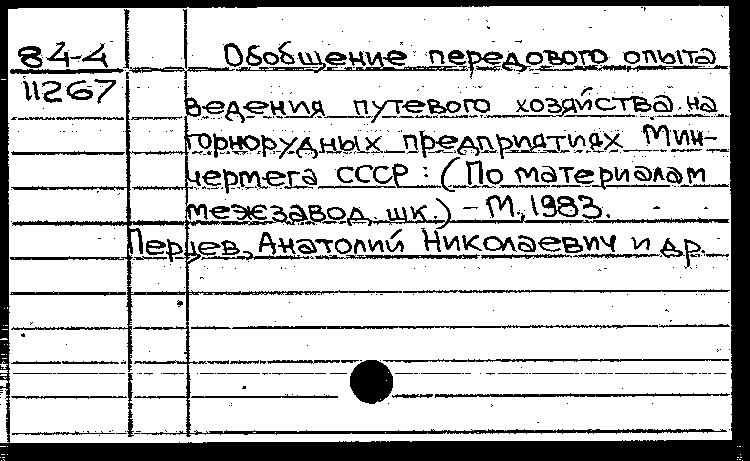 84-4 Обобщение передового опыта
11267
ведения путевого хозяйства на
горнорудных предприятиях Мин-
чермета СССР : (По материалам
межзавод. шк.) - М., 1983.
Перцев, Анатолий Николаевич и др.